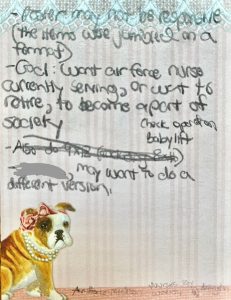 - Poster may not be responsive
(the items were jumbled in a
format)
- Goal: Want air force nurse
currently serving, or want to
retire, to become a part of
society
check operation
Baby lift
- Also do
may want to do a
different version.